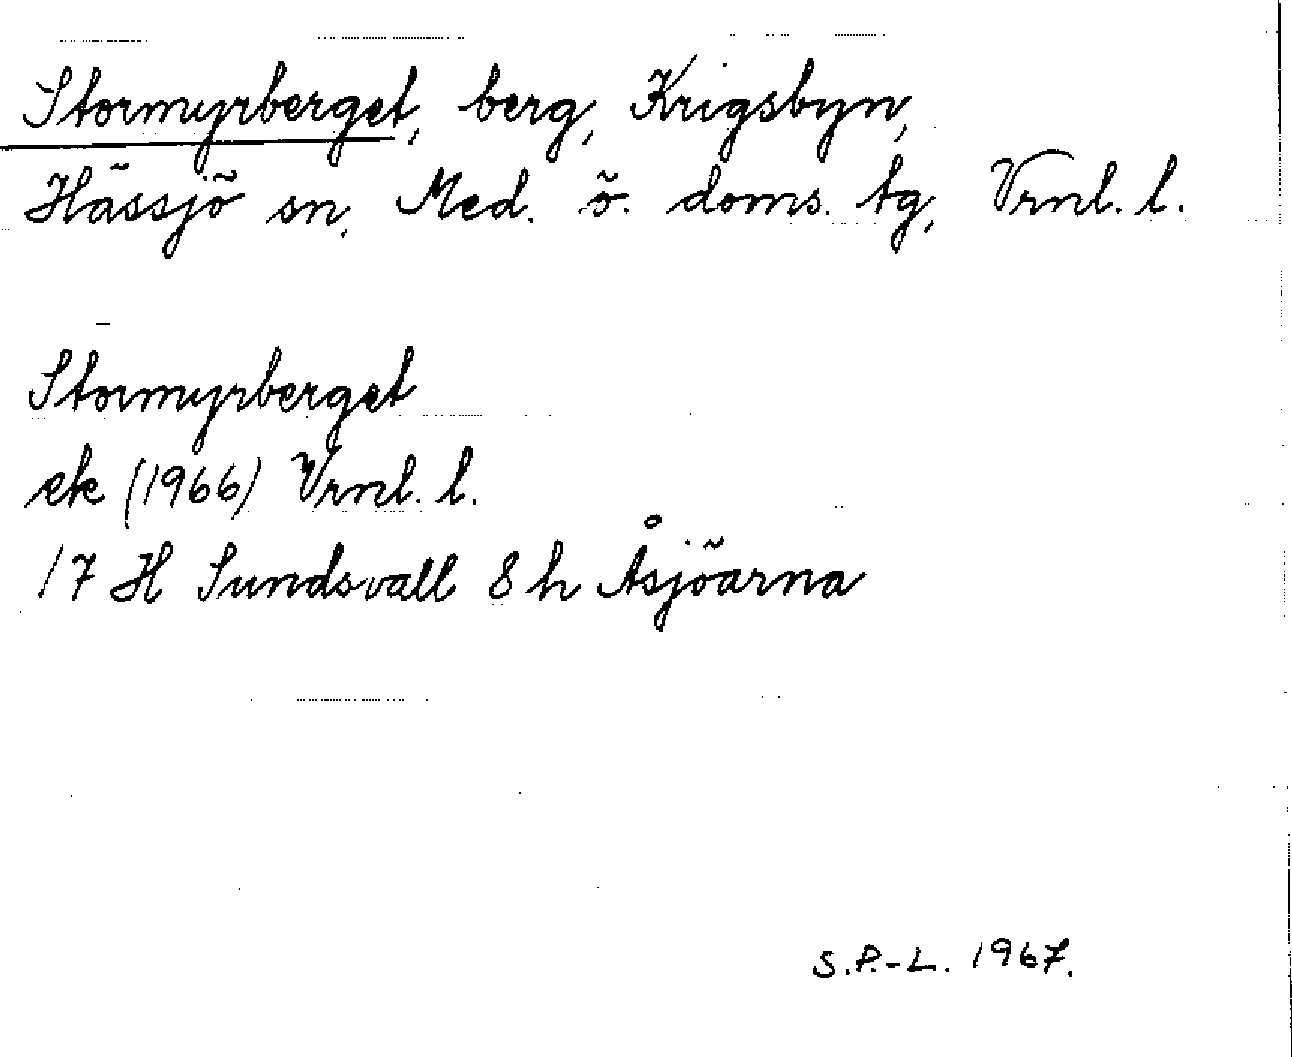 Stormyrberget, berg, Krigsbyn,
Hässjö sn, Med. ö. doms. tg, Vrnl. l.
Stormyrberget
ek (1966) Vrnl. l.
17 H Sundsvall 8 h Åsjöarna
S.P.-L. 1967.